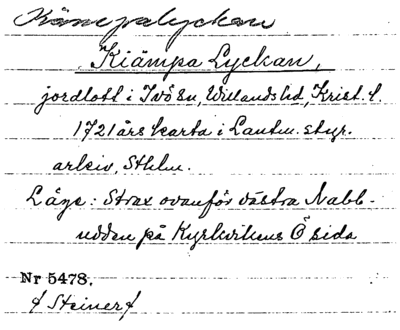 Kämpalyckan
Kiämpa Lyckan,
jordlott i Ivö sn, Willands hd, Krist. l.
1721 års karta i Lantm. styr.
arkiv, Sthlm.
Läge: Strax ovanför västra Nabb-
udden på Kyrkvikens Ö sida
Nr 5478.
/ Steiner /